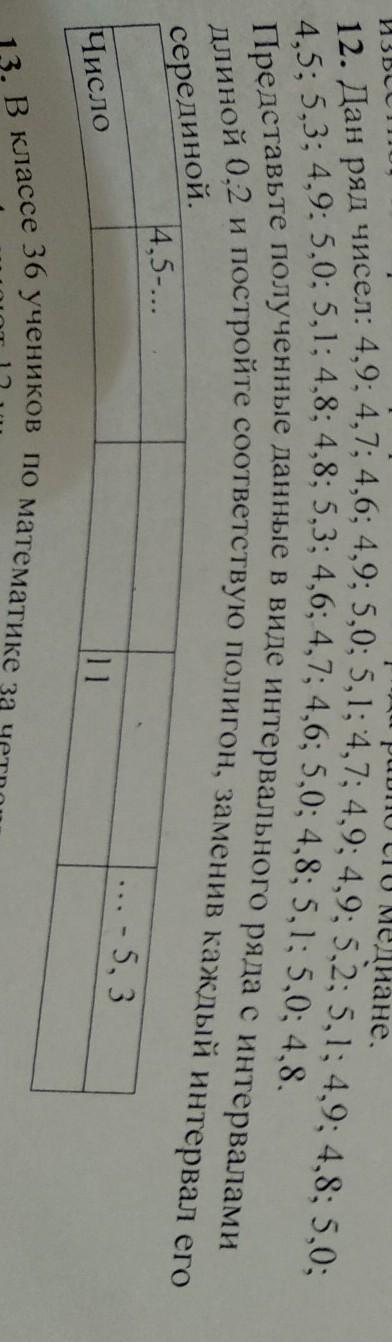 12. Дан ряд чисел: 4,9; 4,7; 4,6; 4,9; 5,0; 5,1; 4,7; 4,9; 4,9; 5,2; 5,1; 4,9; 4,8; 5,0;
4,5; 5,3; 4,9; 5,0; 5,1; 4,8; 4,8; 5,3; 4,6; 4,7; 4,6; 5,0; 4,8; 5,1; 5,0; 4,8.
Представьте полученные данные в виде интервального ряда с интервалами
длиной 0,2 и постройте соответствую полигон, заменив каждый интервал его
серединой.
4,5-... ... - 5, 3
Число 11
13. В классе 36 учеников по математике за